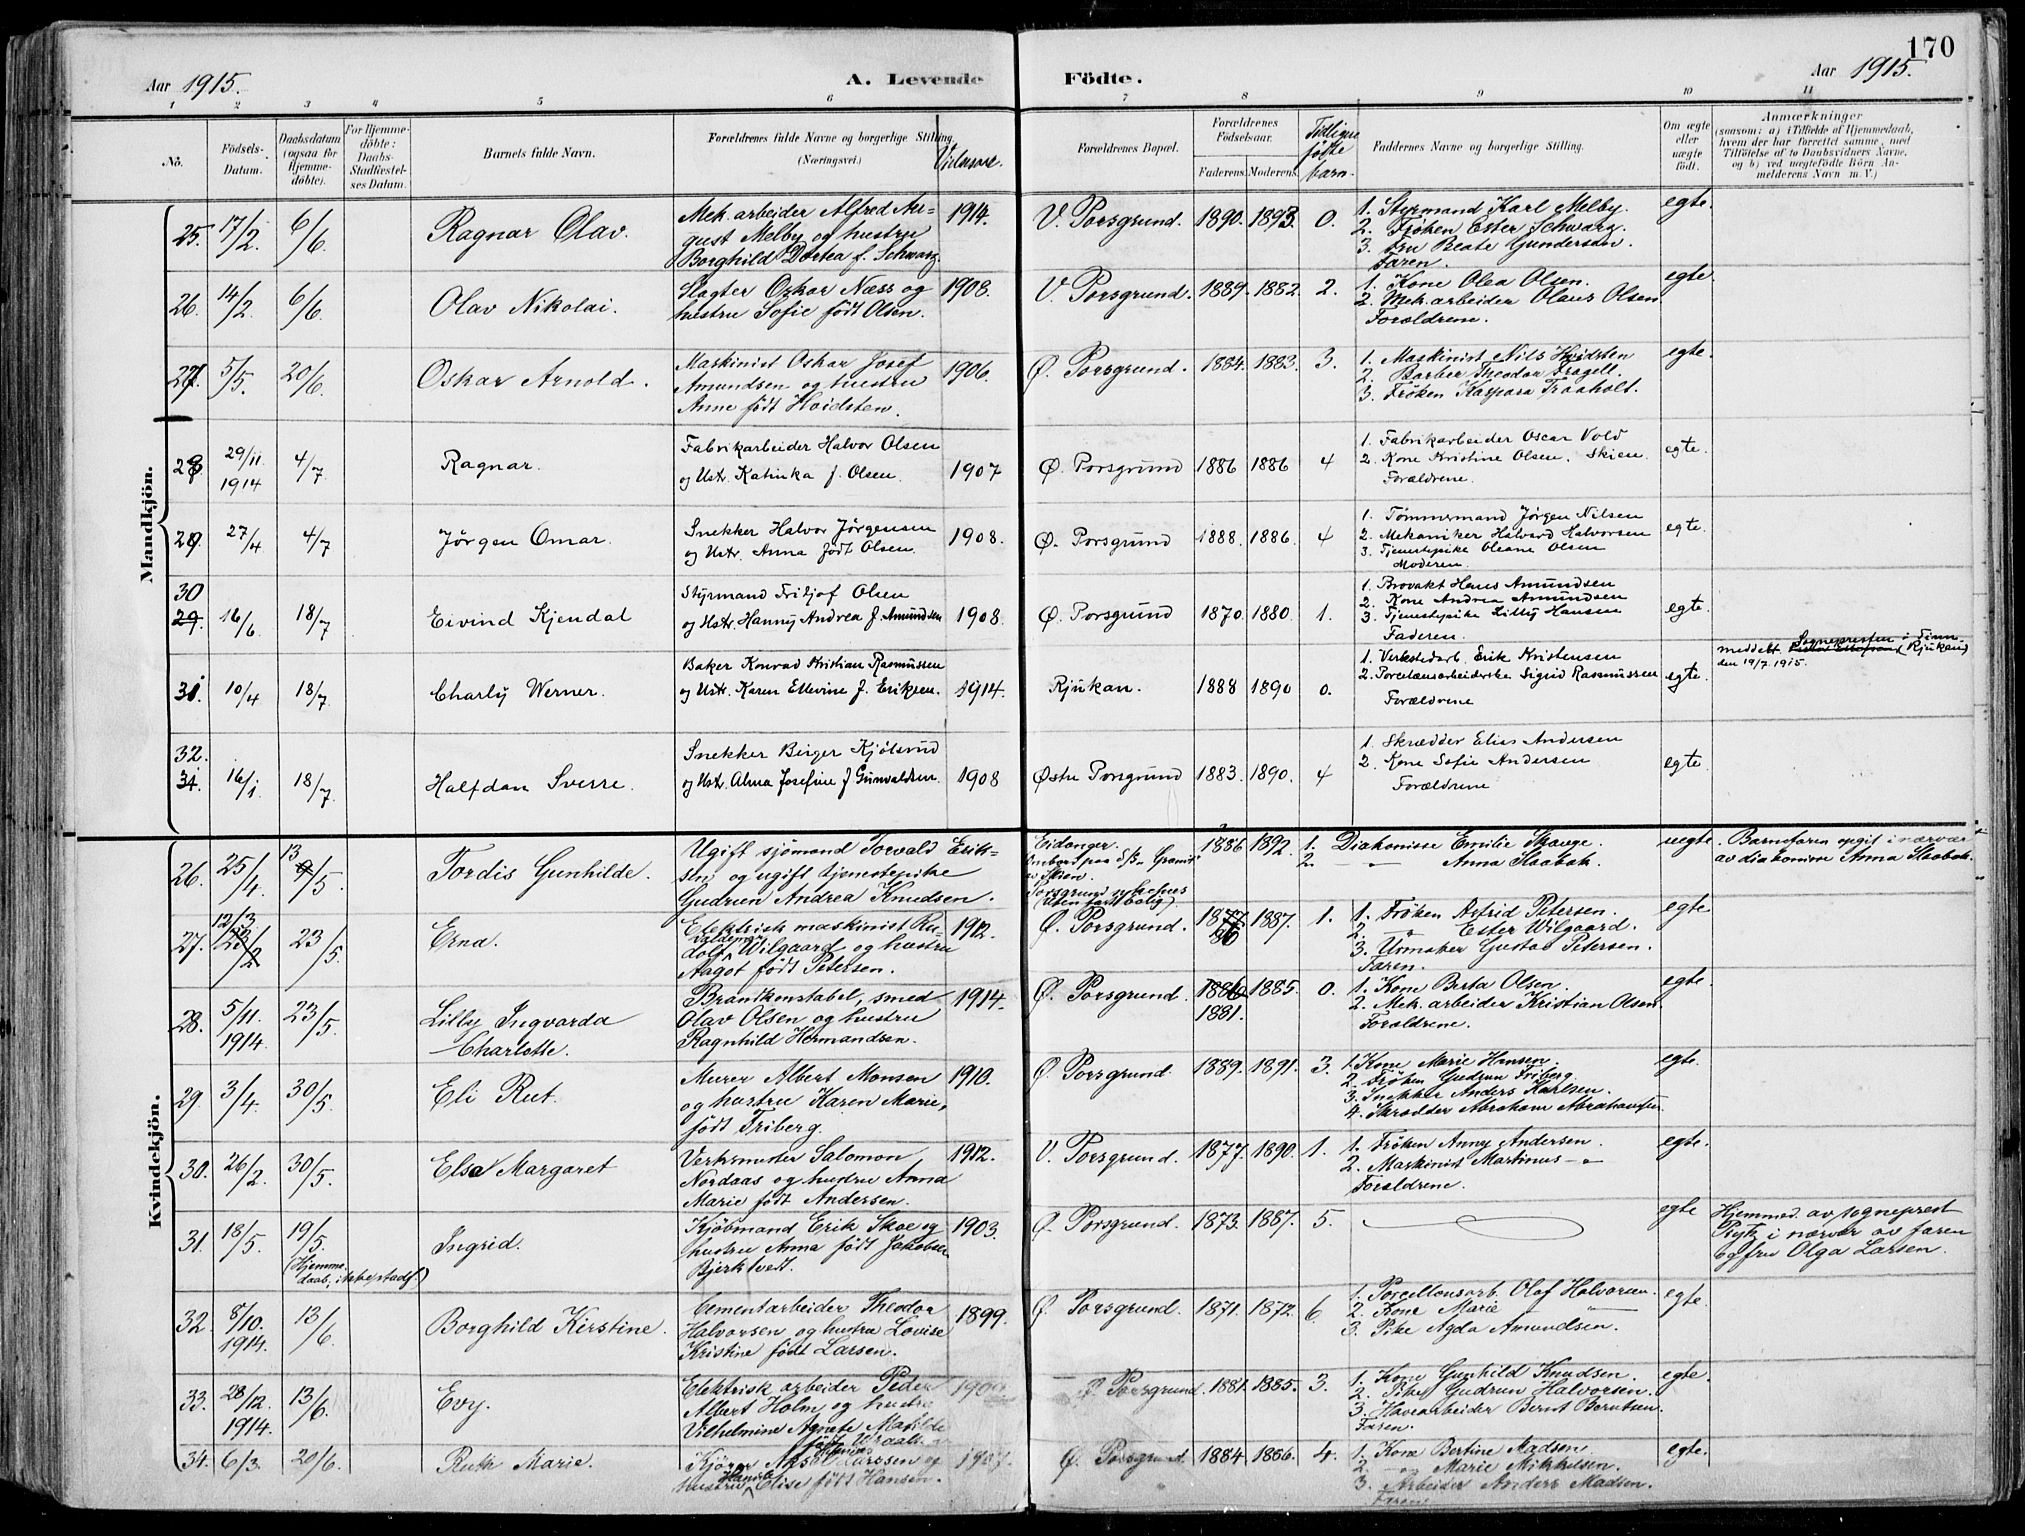 170
Aar 1915.
A. Levende Födte.
Aar 1915.
1 2 3 4 5 6 7 8 9 10 11
No.
Födsels-Datum.
Daabsdatum (ogsaa for Hjemmedöbte).
For Hjemmedöbte: Daabs-Stadfæstelses Datum.
Barnets fulde Navn.
Forældrenes fulde Navne og borgerlige Stilling. (Næringsvei.)
Vielsesaar.
Forældrenes Bopæl.
Forældrenes Födselsaar.
Faderens. Moderens.
Tidligere fødte barn.
Faddernes Navne og borgerlige Stilling.
Om ægte eller uægte födt.
Anmærkninger
(saasom: a) i Tilfælde af Hjemmedaab, hvem der har forrettet samme, med Tilföielse af to Daabsvidners Navne, og b) ved uægtefödte Börn Anmelderens Navn m. V.)
Mandkjön.
25. 17/2. 6/6 Ragnar Olav.
Mek. arbeider Alfred Au-
gust Melby og hustru
Borghild Dortea f. Schwarz.
1914. V. Porsgrund. 1890. 1893. 0.
1. Styrmand Karl Melby.
2. Frøken Ester Schwarz.
3. Fru Beate Gundersen.
Faren.
egte.
26. 14/2. 6/6. Olav Nikolai.
Slagter Oskar Næss og
hustru Sofie født Olsen.
1908. V. Porsgrund. 1889. 1882. 2.
1. Kone Olea Olsen.
2. Mek. arbeider Olaus Olsen
Forældrene.
egte.
27. 5/5. 20/6. Oskar Arnold.
Maskinist Oskar Josef
Amundsen og hustru
Anne født Hvidsten.
1906. Ø. Porsgrund. 1884. 1883. 3.
1. Maskinist Nils Hvidsten
2. Barber Theodor Fragell.
3. Frøken Kaspara Traaholt.
egte.
28 29/11 1914 4/7. Ragnar.
Fabrikarbeider Halvor Olsen
og Ustr. Katinka f. Olsen.
1907 Ø. Porsgrund 1886 1886 4
1. Fabrikarbeider Oscar Vold
2. Kone Kristine Olsen. Skien.
Forældrene.
egte.
29. 27/4 4/7 Jørgen Omar.
Snekker Halvor Jørgensen
og Ustr. Anna født Olsen.
1908. Ø. Porsgrund 1888. 1886. 4
1. Tømmermand Jørgen Nilsen
2. Mekaniker Halvard Halvorsen
3. Tjenestepike Oleane Olsen
Moderen.
egte.
30
29. 16/6 18/7 Eivind Kjendal
Styrmand Fritjof Olsen
og Hstr. Hanny Andrea f. Amundsen
1908. Ø. Porsgrund 1870. 1880. 1.
1. Brovakt Hans Amundsen
2. Kone Andrea Amundsen
3. Tjenestepike Lilly Hansen
Faderen.
egte.
31. 10/4 18/7 Charly Werner.
Baker Konrad Kristian Rasmussen
og Ustr. Karen Ellevine f. Eriksen.
1914. Rjukan. 1888 1890 0.
1. Verkstedarb. Erik Kristensen
2. Porcelænsarbeiderske Sigrid Rasmussen
Forældrene
egte.
Sognepresten i Tinn
meddelt (Rjukan)
den 19/7. 1915.
32.
31. 16/1 18/7. Halfdan Sverre.
Snekker Birger Kjølsrud
og Ustr. Alma Josefine f Gunvaldsen.
1908 Østre Porsgrund 1883. 1890. 4
1. Skrædder Elias Andersen
2. Kone Sofie Andersen
Forældrene
egte.
Kvindekjön.
26. 25/4. 13/5. Tordis Gunhilde.
Ugift sjømand Torvald Erik-
sen og ugift tjenestepike
Gudrun Andrea Knudsen.
Eidanger.
Ombord paa S/S "Granit"
av Skien.
Porsgrund sykehus
(uten fast bolig).
1886 1892.
1. Diakonisse Emilie Skauge.
2. — " — Anna Slaabak.
uegte.
Barnefaren opgit i nærvær
av diakonisse Anna Slaabak.
27. 12/3 23/5. Erna.
Elektrisk maskinist Ru-
dolf Valdemar Wilgaard og hustru
Aagot født Petersen.
1912. Ø. Porsgrund. 1877 86 1887. 1.
1. Frøken Astrid Petersen.
2. — " — Ester Wilgaard.
3. Urmaker Gustav Petersen.
Faren.
egte
28. 5/11. 1914. 23/5. Lilly Ingvarda
Charlotte.
Brandkonstabel, smed
Olav Olsen og hustru
Ragnhild Hermandsen.
1914. Ø. Porsgrund. 1880 1881. 1885. 0.
1. Kone Berta Olsen.
2. Mek. arbeider Kristian Olsen.
Forældrene.
egte.
29. 3/4. 30/5. Eli Rut.
Murer Albert Monsen
og hustru Karen Marie,
født Friberg.
1910. Ø. Porsgrund. 1889. 1891. 3.
1. Kone Marie Hansen.
2. Frøken Gudrun Friberg.
3. Snekker Anders Karlsen.
4. Skrædder Abraham Abrahamsen
egte.
30. 26/2. 30/5. Elsa Margaret
Verksmester Salomon
Nordaas og hustru Anna
Marie født Andersen.
1912. V. Porsgrund. 1877. 1890. 1.
1. Frøken Anny Andersen.
2. Maskinist Martinus — " —
Forældrene.
egte.
31. 18/5. 19/5. Ingrid.
(Hjemme-
daab, ikke stadf.)
Kjøbmand Erik Skoe og
hustru Anna født Jakobsen
Bjerktvedt.
1903. Ø. Porsgrund. 1873. 1887. 5.
egte
Hjemmed. av sogneprest
i nærvær av faren
og fru Olga Larsen.
32. 8/10. 1914. 13/6. Borghild Kirstine.
Cementarbeider Theodor
Halvorsen og hustru Lovise
Kristine født Larsen.
1899. Ø. Porsgrund. 1871. 1872. 6.
1. Porcellænsarb. Olaf Halvorsen.
2. Kone Marie — " —
3. Pike Agda Amundsen.
egte.
33. 28/12. 1914. 13/6. Evy.
Elektrisk arbeider Peder
Albert Holm og hustru
Vilhelmine Agnete Matilde
Ø Porsgrund 1881. 1885. 3.
1. Kone Gunhild Knudsen.
2. Pike Gudrun Halvorsen.
3. Havearbeider Bernt Berntsen.
Faren.
egte.
34. 6/3. 20/6. Ruth Marie.
Kjører Aksel Larssen og
hustru Elise født Hansen.
Ø. Porsgrund. 1884. 1886. 4.
1. Kone Bertine Madsen.
2. — " — Marie Mikkelsen.
3. Arbeider Anders Madsen.
Faren.
egte.